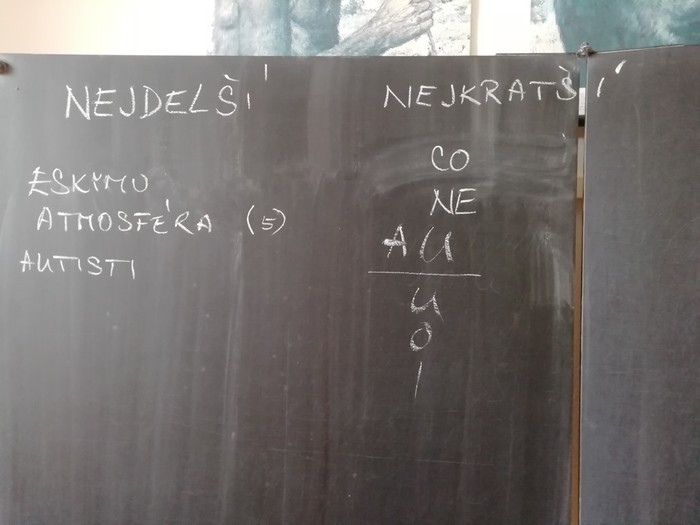 NEJDELŠÍ
ESKYMO
ATMOSFÉRA (5)
AUTISTI
NEJKRATŠÍ
CO
NE
AU
U
O
I